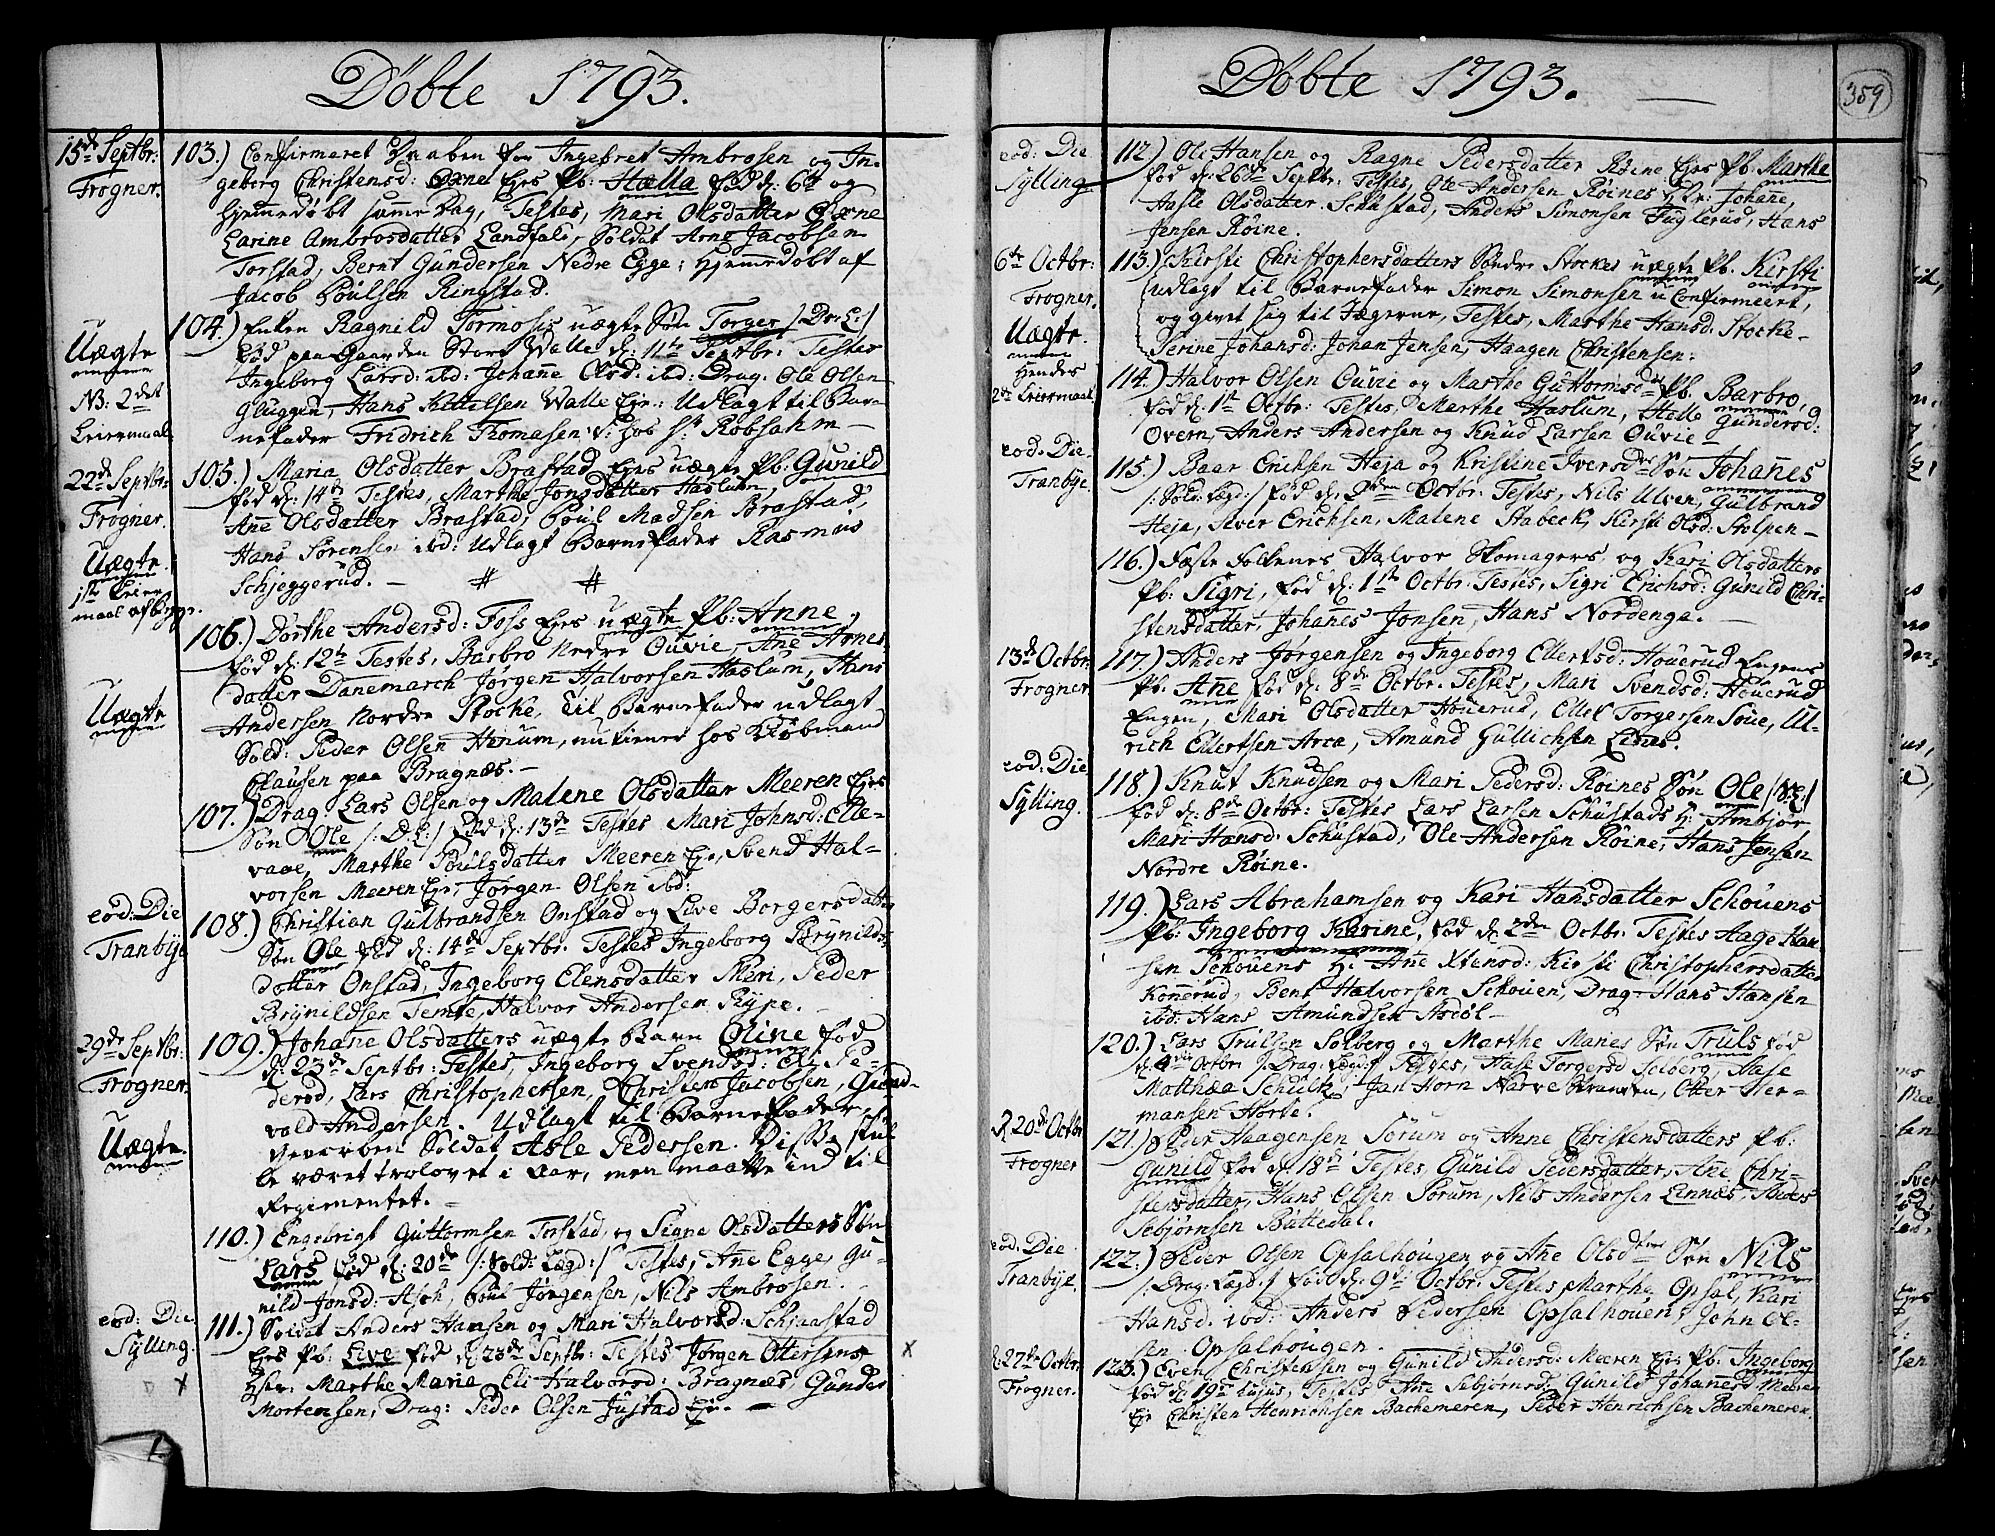 Döbte 1793.
15de Septbr:
Frogner.
103.) Confirmeret Daaben for Ingebret Ambrosen og In-
geberg Christensd: Oxne Ejes Pb: Hælla fød d: 6te og
hjemmedøbt samme Dag, Testes, Mari Olsdatter Oxne
Larine Ambrosdatter Landfald, Soldat Arne Jacobsen
Torstad, Bernt Gundersen Nedre Egge; Hjemmedøbt af
Jacob Poulsen Ringstad.
Uægte
NB: 2det
Leiermaal.
104.) Enken Ragnild Tormosis uægte Søn Torger /:Dr: L:/
fød paa Gaarden Store Walle d: 11te Septbr: Testes
Ingeborg Larsd: ibd: Johanne Olsd: ibd: Drag. Ole Olsen
Gluggen, Hans Kittelsen Walle Eje: Udlagt til Bar-
nefader Fridrich Thomasen hos Hr Robsahm
22de Septbr:
Frogner.
Uægte
1ste Leier
maal af begge.
105.) Maria Olsdatter Brastad Ejes uægte Pb: Gunild
fød d: 14de Testes, Marthe Jonsdatter Haslum,
Ane Olsdatter Brastad, Poul Madsen Brastad,
Hans Sørensen ibd: Udlagt Barnefader Rasmus
Schjeggerud. — # #
Uægte
106.) Dorthe Andersd: Foss Ejes uægte Pb: Anne,
fød d: 12te Testes, Barbro Nedre Ouvie, Ane Arnes
datter Danemarch Jørgen Halvorsen Haslum, Hans
Andersen Nordre Stocke, Til Barnefader udlagt
Sold: Peder Olsen Henum, nu tiener hos Kiøbmand
Clausen paa Bragnæs. —
107.) Drag: Lars Olsen og Malene Olsdatter Meeren Ejes
Søn Ole /: D: L:/ fød d: 13de Testes Mari Johnsd: Elle-
vaae, Marthe Poulsdatter Meeren Eje, Svend Hal-
vorsen Meeren Eje, Jørgen Olsen ibd:
eod: Die
Tranbye
108.) Christian Gulbrandsen Onstad og Live Borgersdatter
Søn Ole fød d: 14de Septbr. Testes Ingeborg Brynilds
dotter Onstad, Ingeborg Elensdatter Meri, Peder
Brynildsen Temte, Halvor Andersen Rype.
29de Septbr:
Frogner.
Uægte.
109.) Johane Olsdatters uægte Barn Oline fød
d: 23de Septbr: Testes, Ingeborg Svendsd: Eli Pe-
dersd, Lars Christophersen, Christen Jacobsen, Gund-
vald Andersen. Udlagt til Barnefader,
gevorben Soldat Asle Pedersen. Disse skul
le været trolovet i Aar, men maatte ind til
Regimentet. —
110.) Engebrigt Guttormsen Torstad, og Signe Olsdatters Søn
Lars fød d: 20de /:Sold: Lægd:/ Testes, Ane Egge, Gu-
nild Jonsd: Asch, Poul Jørgensen, Nils Ambrosen.
eod: Die
Sylling.
x
111.) Soldat Anders Hansen og Mari Halvorsd: Schjaastad
Ejes Pb: Live fød d: 23de Septbr: Testes Jørgen Ottersens
Hstr: Marthe Marie Eli Halvorsd: Bragnæs, Gunder
Mortensen, Drag: Peder Olsen Justad Eje. —
x
Döbte 1793. —
359
eod: Die
Sylling
112.) Ole Hansen og Ragne Pedersdatter Röine Ejes Pb: Marthe
fød d: 26de Septbr: Testes, Ole Andersen Röines Hstr: Johane,
Aasle Olsdatter Schustad, Anders Simonsen Fuglerud, Hans
Jensen Röine.
6te Octbr:
Frogner.
Uægte.
Hendes
2det Leiermaal
113.) Kirsti Christophersdatters Søndre Stockes uægte Pb. Kirsti
udlagt til Barnefader Simon Simonsen u Confirmeert,
og givet sig til Jægerne, Testes, Marthe Hansd: Stocke-
Serine Johansd: Johan Jensen, Haagen Christensen:
114.) Halvor Olsen Ouvie og Marthe Guttormsd: Pb. Barbro,
fød d: 1st Octbr: Testes, Marthe Haslum, Helle Gundersd:
Overn, Anders Andersen og Knud Larsen Ouvie
eod: Die.
Tranbye.
115.) Baar Ericksen Heja og Kristine Iversd: Søn Johanes
/:Sold: Lægd:/ fød d: 2den Octbr: Testes, Nils Ulven, Gulbrand
Heja, Iver Erichsen, Malene Stabeck, Kirsti Olsd: Stolpen —
116.) Fæste Folkenes Halvor Skomagers, og Kari Olsdatters
Pb: Sigri, fød d: 1ste Octbr. Testes, Sigri Erichsd: Gunild Chri-
stensdatter, Johanes Jonsen, Hans Nordenga. —
13de Octbr:
Frogner
117.) Anders Jørgensen og Ingeborg Ellertsd: Houerud Engens
Pb. Ane fød d: 8de Octbr: Testes, Mari Svendsd: Houerud
Engen, Mari Olsdatter Houerud, Ellef Torgersen Soue, Ul-
rich Ellertsen Arca, Amund Gullichsen Lisus.
eod: Die
Sylling.
118.) Knut Knudsen og Mari Pedersd: Röines Søn Ole /:S: L:/
fød d: 8de Octbr: Testes Lars Larsen Schustads H: Ambjør
Mari Hansd: Schustad, Ole Andersen Röine, Hans Jensen
Nordre Röine.
119.) Lars Abrahamsen og Kari Hansdatter Schouens
Pb: Ingeborg Karine, fød d: 2den Octbr. Testes Aage Han-
sen Schouens H: Ane Xtensd: Kirsti Christophersdatter
Kommerud, Bent Halvorsen Schouen, Drag: Hans Hansen
ibd: Hans Amundsen Asiøl —
120.) Lars Trulsen Solberg og Marthe Manes Søn Truls fød
d: 4de Octbr /: Drag: Lægd:/ Testes, Aase Torgersd Solberg, Aase
Matthæa Schulk, Jan Horn Narve Kranven, Otter Her-
mansen Horte.
20de Octbr
Frogner
121.) Peder Haagensen Sørum og Anne Christensdatters Pb:
Gunild fød d: 18de Testes, Gunild Pedersdatter, Ane Chri-
stensdatter, Hans Olsen Sørum, Nils Andersen Linnæs,
Sebjørnsen Buttedal.
eod: Die
Tranbye.
122.) Peder Olsen Opsalhougen og Ane Olsdtters Søn Nils
/: Drag: Lægd:/ fød d: 9de Octbr: Testes Marthe Opsal, Kari
Hansd: ibd: Anders Pedersen Opsalhouen, John Ol-
sen Opsalhougen.
27de Octbr.
Frogner.
123.) Even Christensen og Gunild Andersd: Meeren Ejes Pb: Ingeborg
fød d: 19de hujus, Testes Ane Sebjørnsd, Gunild Johanesd Meeren
Eje Christen Henrichsen Bachemeren, Peder Henrichsen Bachemeren.